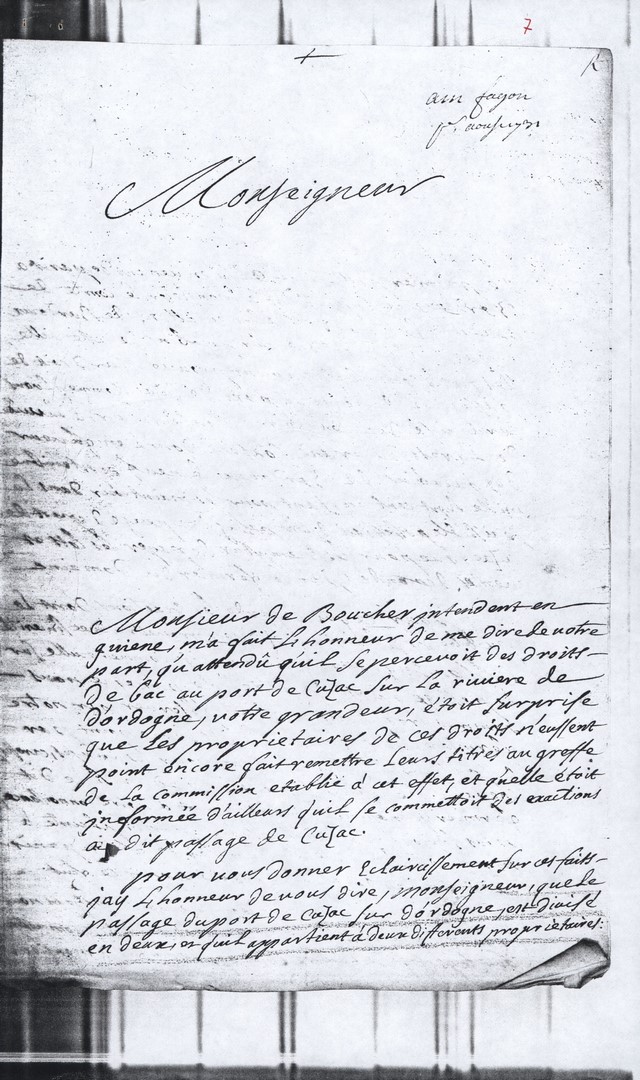 7
am fagon
Monseigneur
Monsieur de Boucher jntendent en
guiene, m'a fait L'honneur de me dire de votre
part, qu'attendû quil se percevoit des droits
de bac au port de Cuzac sur La riviere de
d'ordogne, votre grandeur, étoit surprise
que Les proprietaires de ces droits n'eussent
point encore fait remettre Leurs titres au greffe
de La commission etablie a cet effet, et quelle étoit
jnformée d'ailleurs quil se commettoit des exactions
au dit passage de Cuzac.
pour vous donner Eclaircissement sur ces faits
jay L'honneur de vous dire, monseigneur, que Le
passage du port de Cuzac sur d'ordogne, est divisé
en deux, et quil appartient à deux differents proprietaires: